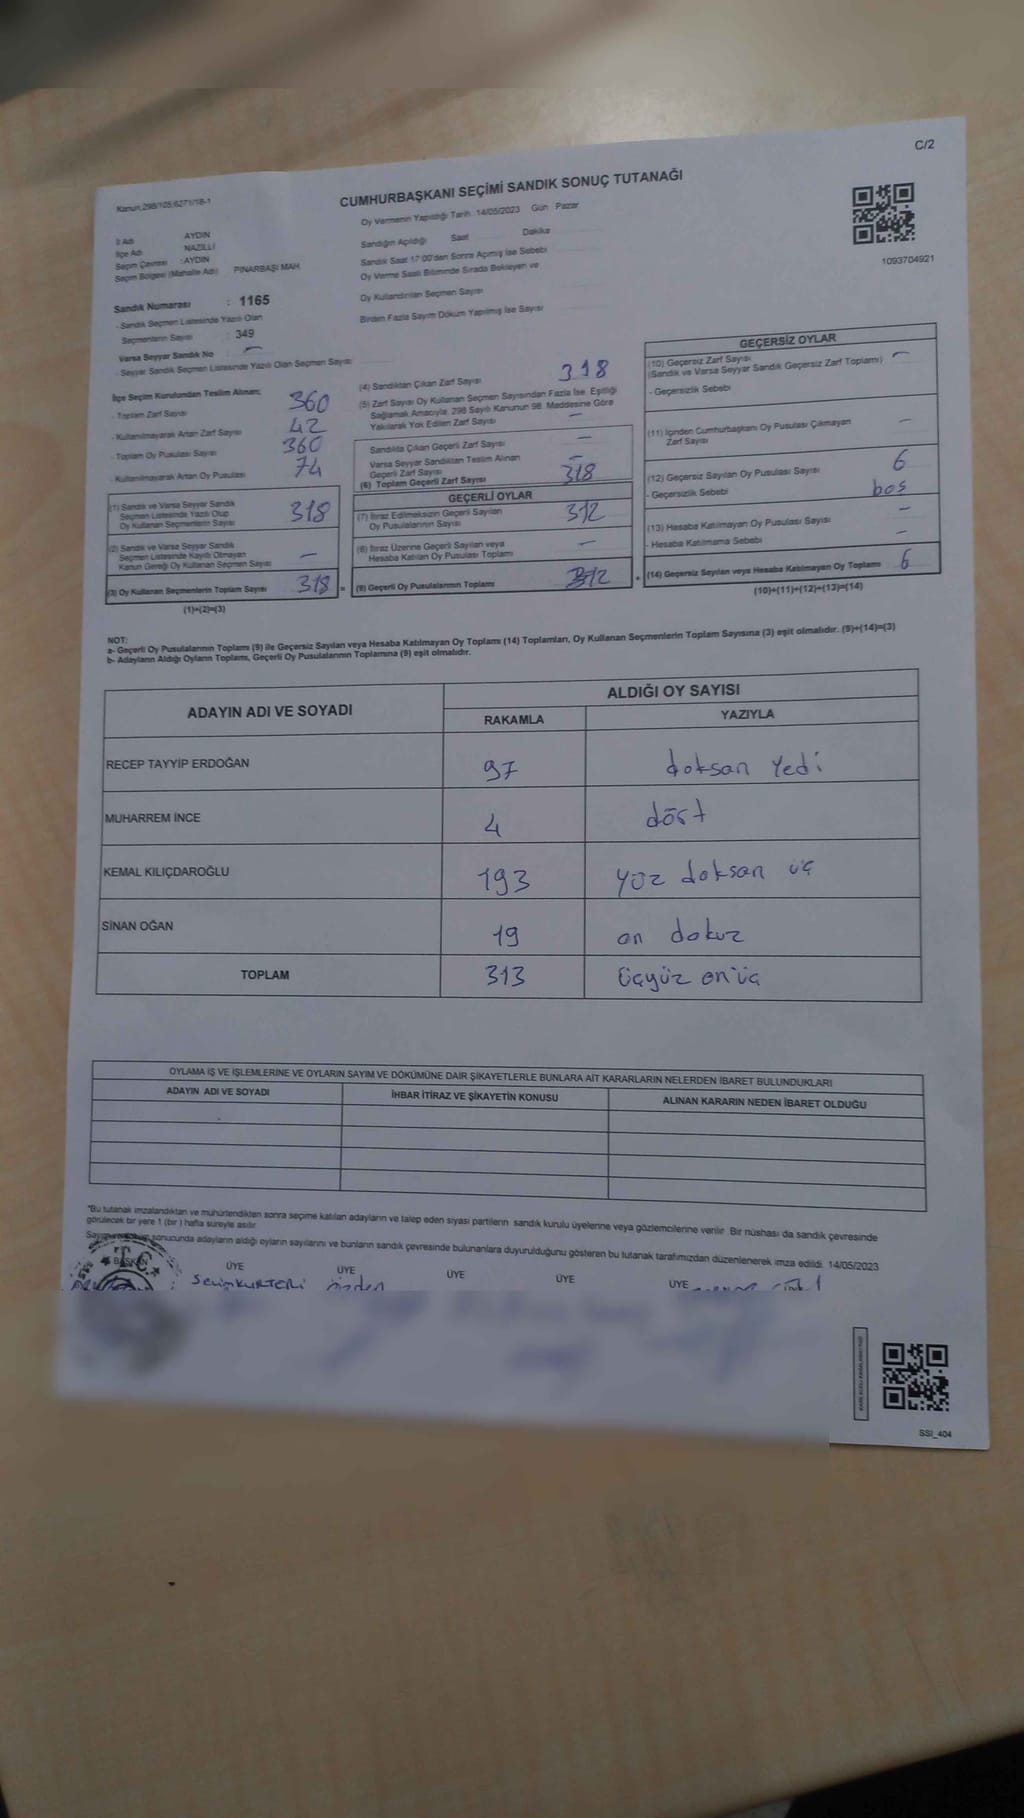 C/2
Kanun 298/105;6271/18-1
CUMHURBAŞKANI SEÇİMİ SANDIK SONUÇ TUTANAĞI
Oy Vermenin Yapıldığı Tarih. 14/05/2023 Gün Pazar
İl Adı AYDIN
İlçe Adı NAZİLLİ
Seçim Çevresi : AYDIN
Seçim Bölgesi (Mahalle Adı) PINARBAŞI MAH.
Sandığın Açıldığı Saat Dakika
Sandık Saat 17:00'den Sonra Açımış İse Sebebi
Oy Verme Saati Bitiminde Sırada Bekleyen ve
Oy Kullandırılan Seçmen Sayısı
Birden Fazla Sayım Döküm Yapılmış İse Sayısı
1093704921
Sandık Numarası : 1165
- Sandık Seçmen Listesinde Yazılı Olan
Seçmenlerin Sayısı : 349
Varsa Seyyar Sandık No : —
- Seyyar Sandık Seçmen Listesinde Yazılı Olan Seçmen Sayısı
İlçe Seçim Kurulundan Teslim Alınan;
- Toplam Zarf Sayısı 360
- Kullanılmayarak Artan Zarf Sayısı 42
- Toplam Oy Pusulası Sayısı 360
- Kullanılmayarak Artan Oy Pusulası 74
(1) Sandık ve Varsa Seyyar Sandık
Seçmen Listesinde Yazılı Olup
Oy Kullanan Seçmenlerin Sayısı 318
(2) Sandık ve Varsa Seyyar Sandık
Seçmen Listesinde Kayıtlı Olmayan
Kanun Gereği Oy Kullanan Seçmen Sayısı —
(3) Oy Kullanan Seçmenlerin Toplam Sayısı 318 =
(1)+(2)=(3)
(4) Sandıktan Çıkan Zarf Sayısı 318
(5) Zarf Sayısı Oy Kullanan Seçmen Sayısından Fazla İse, Eşitliği
Sağlamak Amacıyla, 298 Sayılı Kanunun 98. Maddesine Göre
Yakılarak Yok Edilen Zarf Sayısı —
Sandıkta Çıkan Geçerli Zarf Sayısı —
Varsa Seyyar Sandıktan Teslim Alınan
Geçerli Zarf Sayısı —
(6) Toplam Geçerli Zarf Sayısı 318
GEÇERLİ OYLAR
(7) İtiraz Edilmeksizin Geçerli Sayılan
Oy Pusulalarının Sayısı 312
(8) İtiraz Üzerine Geçerli Sayılan veya
Hesaba Katılan Oy Pusulası Toplamı —
(9) Geçerli Oy Pusulalarının Toplamı 312 +
GEÇERSİZ OYLAR
(10) Geçersiz Zarf Sayısı —
(Sandık ve Varsa Seyyar Sandık Geçersiz Zarf Toplamı)
- Geçersizlik Sebebi
(11) İçinden Cumhurbaşkanı Oy Pusulası Çıkmayan
Zarf Sayısı —
(12) Geçersiz Sayılan Oy Pusulası Sayısı 6
- Geçersizlik Sebebi boş
(13) Hesaba Katılmayan Oy Pusulası Sayısı —
- Hesaba Katılmama Sebebi —
(14) Geçersiz Sayılan veya Hesaba Katılmayan Oy Toplamı 6
(10)+(11)+(12)+(13)=(14)
NOT:
a- Geçerli Oy Pusulalarının Toplamı (9) ile Geçersiz Sayılan veya Hesaba Katılmayan Oy Toplamı (14) Toplamları, Oy Kullanan Seçmenlerin Toplam Sayısına (3) eşit olmalıdır. (9)+(14)=(3)
b- Adayların Aldığı Oyların Toplamı, Geçerli Oy Pusulalarının Toplamına (9) eşit olmalıdır.
ADAYIN ADI VE SOYADI ALDIĞI OY SAYISI
RAKAMLA YAZIYLA
RECEP TAYYİP ERDOĞAN 97 doksan yedi
MUHARREM İNCE 4 dört
KEMAL KILIÇDAROĞLU 193 yüz doksan üç
SİNAN OĞAN 19 on dokuz
TOPLAM 313 üçyüz on üç
OYLAMA İŞ VE İŞLEMLERİNE VE OYLARIN SAYIM VE DÖKÜMÜNE DAİR ŞİKAYETLERLE BUNLARA AİT KARARLARIN NELERDEN İBARET BULUNDUKLARI
ADAYIN ADI VE SOYADI İHBAR İTİRAZ VE ŞİKAYETİN KONUSU ALINAN KARARIN NEDEN İBARET OLDUĞU
*Bu tutanak imzalandıktan ve mühürlendikten sonra seçime katılan adayların ve talep eden siyasi partilerin sandık kurulu üyelerine veya gözlemcilerine verilir. Bir nüshası da sandık çevresinde
görülecek bir yere 1 (bir ) hafta süreyle asılır.
sonucunda adayların aldığı oyların sayılarını ve bunların sandık çevresinde bulunanlara duyurulduğunu gösteren bu tutanak tarafımızdan düzenlenerek imza edildi. 14/05/2023
BAŞKAN ÜYE ÜYE ÜYE ÜYE ÜYE
T.C.
Selim KURTERİ Özden
SSI_404